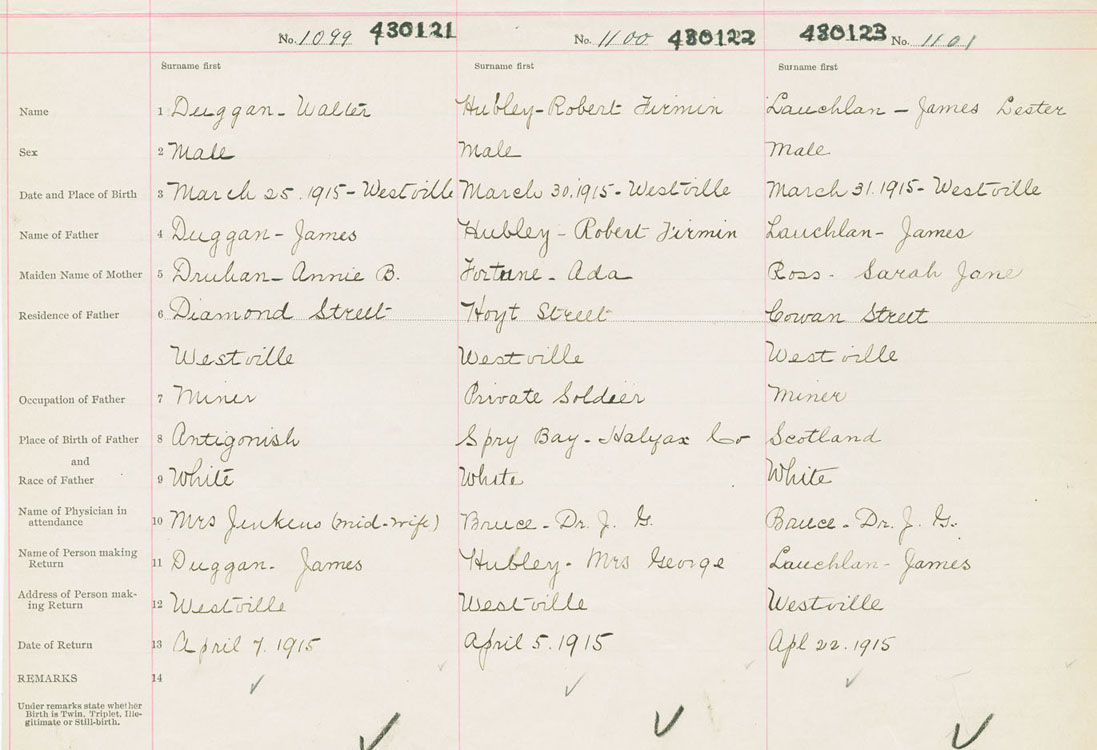 No. 1099 430121 No. 1100 430122 430123 No. 1101
Surname first Surname first Surname first
Name 1 Duggan - Walter Hubley - Robert Firmin Lauchlan - James Lester
Sex 2 Male Male Male
Date and Place of Birth 3 March 25. 1915 - Westville March 30. 1915 - Westville March 31. 1915 - Westville
Name of Father 4 Duggan - James Hubley - Robert Firmin Lauchlan - James
Maiden Name of Mother 5 Druhan - Annie B. Fortune - Ada Ross - Sarah Jane
Residence of Father 6 Diamond Street Hoyt Street Cowan Street
Westville Westville Westville
Occupation of Father 7 Miner Private Soldier Miner
Place of Birth of Father 8 Antigonish Spry Bay - Halifax Co Scotland
and
Race of Father 9 White White White
Name of Physician in
attendance 10 Mrs Jenkens (mid-wife) Bruce - Dr. J. G. Bruce - Dr. J. G.
Name of Person making
Return 11 Duggan - James Hubley - Mrs George Lauchlan - James
Address of Person mak-
ing Return 12 Westville Westville Westville
Date of Return 13 April 7. 1915 April 5. 1915 Apl 22. 1915
REMARKS 14
Under remarks state whether
Birth is Twin, Triplet, Ille-
gitimate or Still-birth.